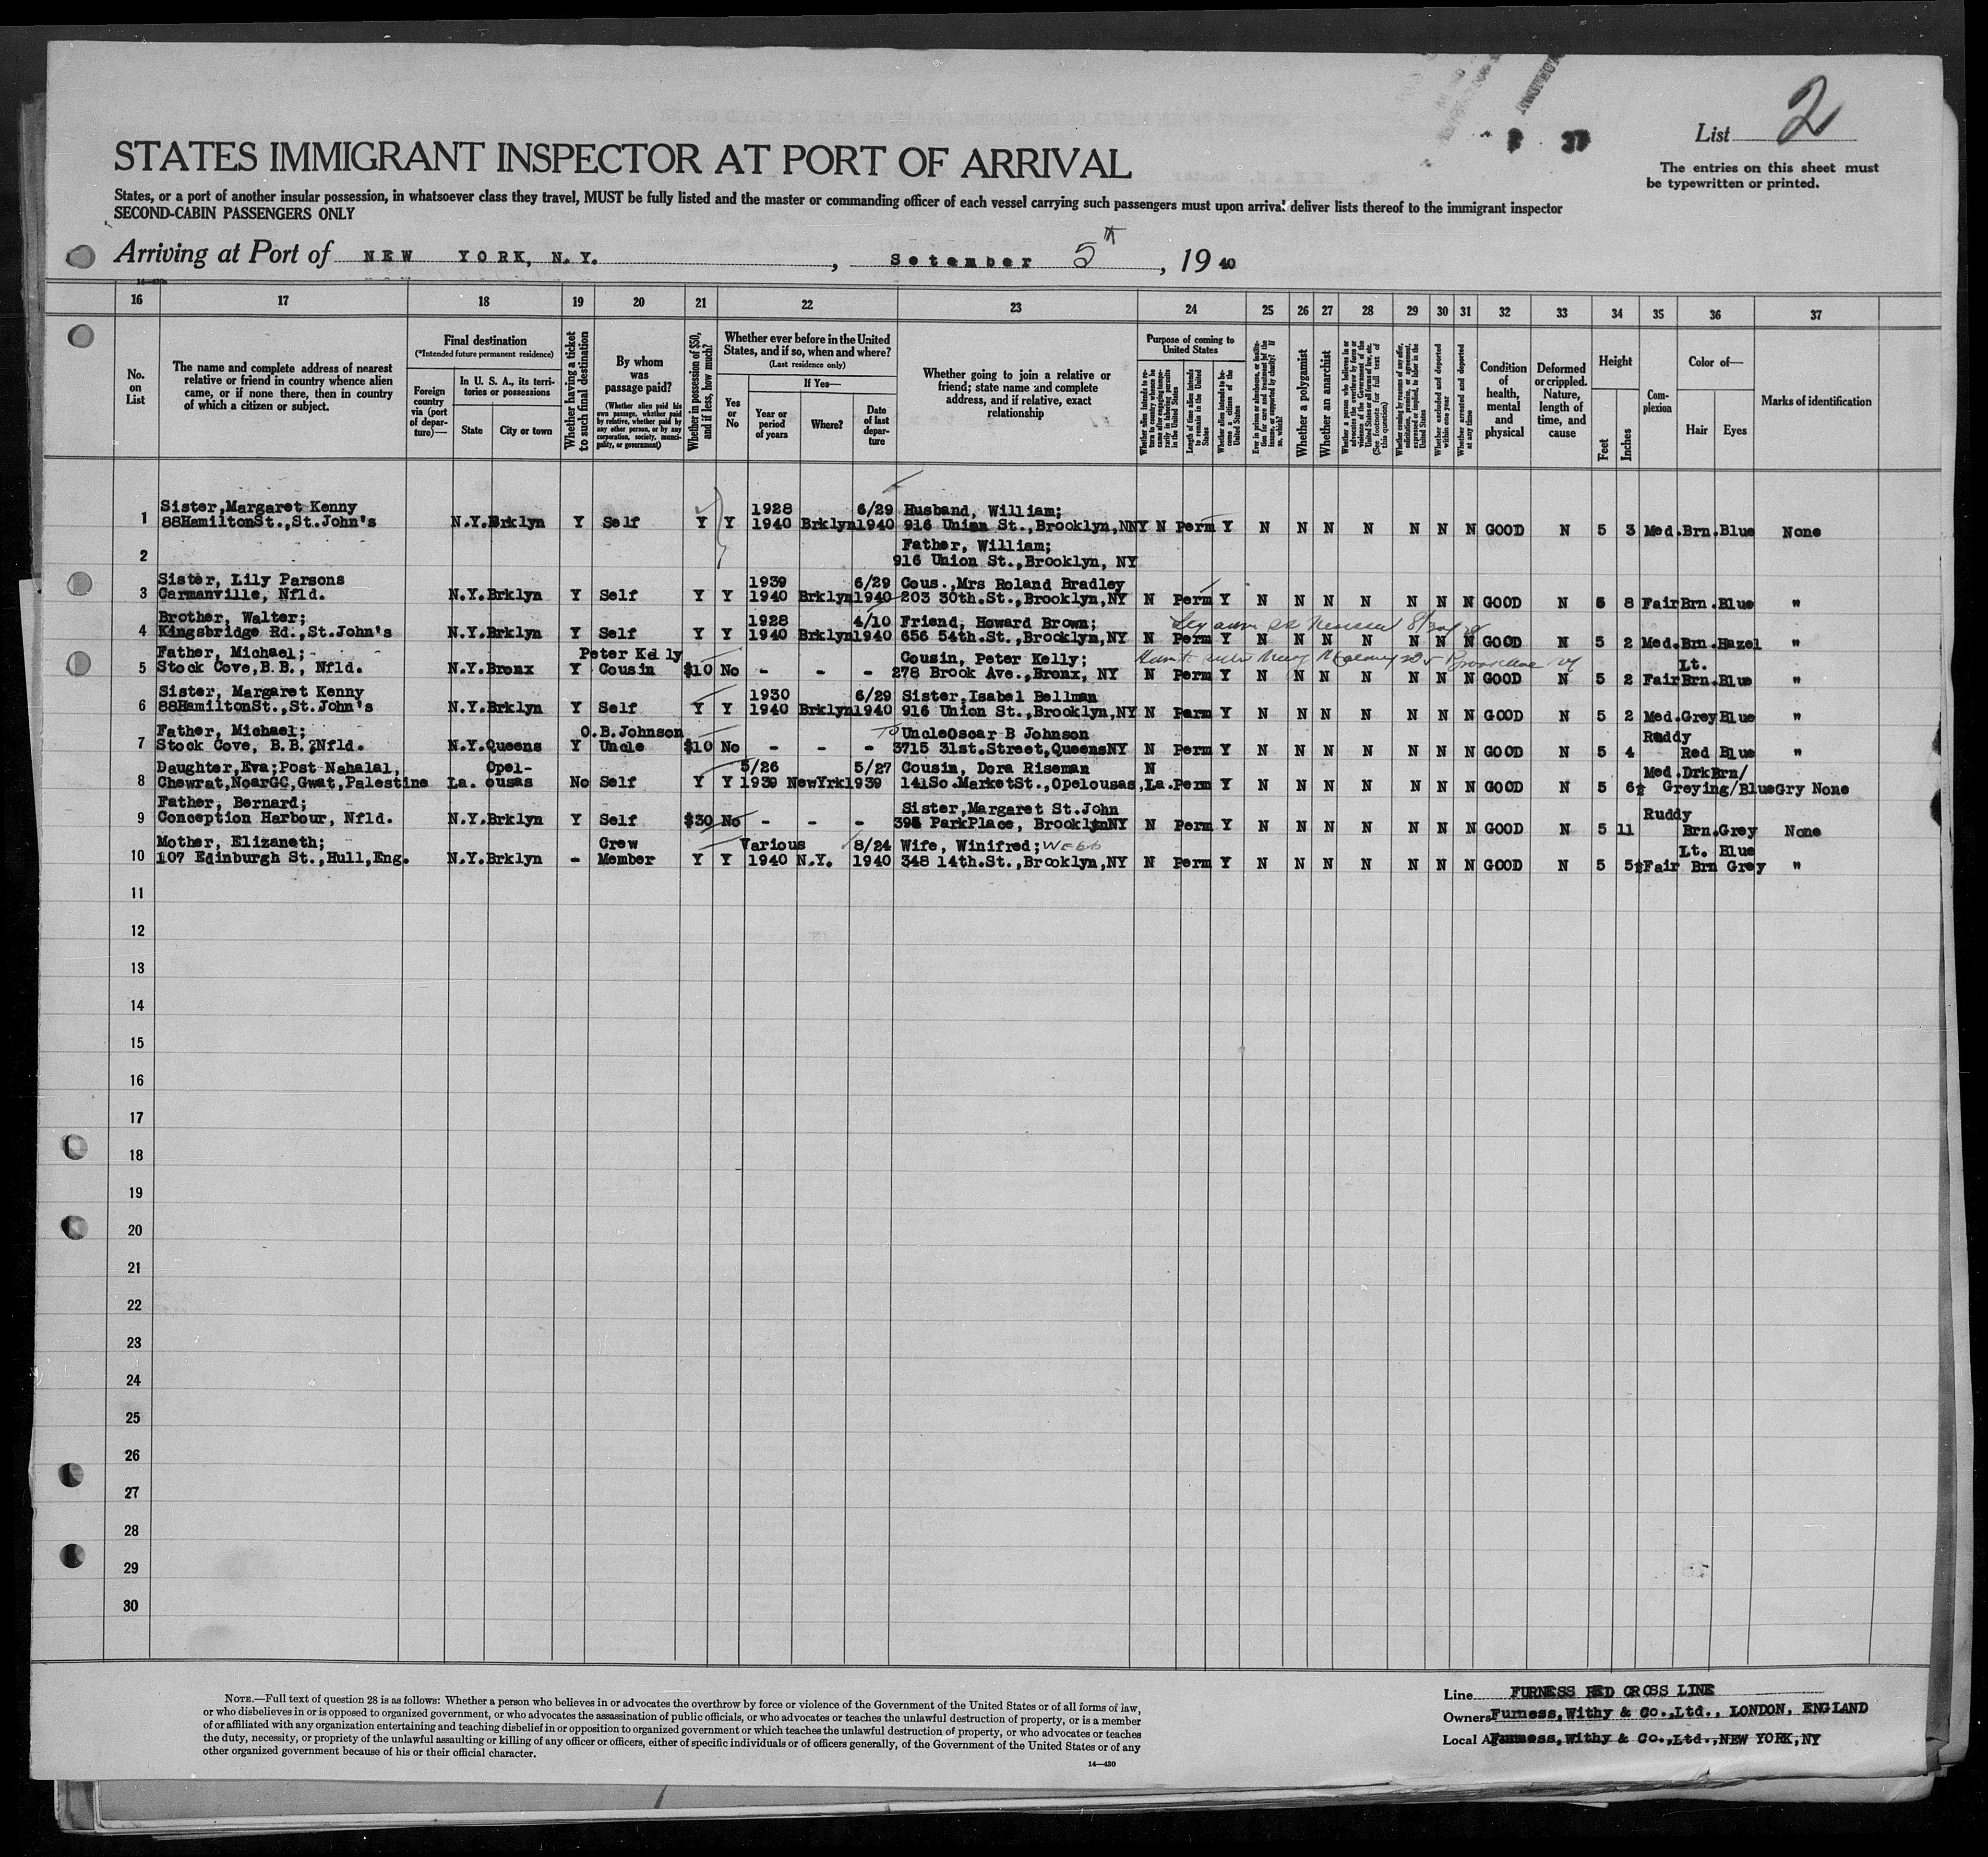 List 2
The entries on this sheet must
be typewritten or printed.
STATES IMMIGRANT INSPECTOR AT PORT OF ARRIVAL
States, or a port of another insular possession, in whatsoever class they travel, MUST be fully listed and the master or commanding officer of each vessel carrying such passengers must upon arrival deliver lists thereof to the immigrant inspector
SECOND-CABIN PASSENGERS ONLY
Arriving at Port of NEW YORK, N.Y. , Setember 5th , 19 40
16 17 18 19 20 21 22 23 24 25 26 27 28 29 30 31 32 33 34 35 36 37
No.
on
List
The name and complete address of nearest
relative or friend in country whence alien
came, or if none there, then in country
of which a citizen or subject.
Final destination
(*Intended future permanent residence)
Foreign
country
via (port
of depar-
ture)—
In U. S. A., its terri-
tories or possessions
State City or town
Whether having a ticket
to such final destination
By whom
was
passage paid?
(Whether alien paid his
own passage, whether paid
by relative, whether paid by
any other person, or by any
corporation, society, munici-
pality, or government)
Whether in possession of $50,
and if less, how much?
Whether ever before in the United
States, and if so, when and where?
(Last residence only)
Yes
or
No
If Yes—
Year or
period
of years
Where?
Date
of last
depar-
ture
Whether going to join a relative or
friend; state name and complete
address, and if relative, exact
relationship
Purpose of coming to
United States
Length of time alien intends
to remain in the United
States
Whether alien intends to be-
come a citizen of the
United States
Whether a polygamist
Whether an anarchist
Whether excluded and deported
within one year
Whether arrested and deported
at any time
Condition
of
health,
mental
and
physical
Deformed
or crippled.
Nature,
length of
time, and
cause
Height
Feet Inches
Com-
plexion
Color of—
Hair Eyes
Marks of identification
Sister,Margaret Kenny 1928 6/29 Husband, William;
1 88HamiltonSt.,St.John's N.Y.Brklyn Y Self Y Y 1940 Brklyn1940 916 Union St.,Brooklyn,NNY N Perm Y N N N N N N N GOOD N 5 3 Med.Brn.Blue None
Father, William;
2 916 Union St.,Brooklyn, NY
Sister, Lily Parsons 1939 6/29 Cous.,Mrs Roland Bradley
3 Carmanville, Nfld. N.Y.Brklyn Y Self Y Y 1940 Brklyn1940 203 30th.St.,Brooklyn,NY N Perm Y N N N N N N N GOOD N 5 8 FairBrn.Blue "
Brother, Walter; 1928 4/10 Friend, Howard Brown;
4 Kingsbridge Rd.,St.John's N.Y.Brklyn Y Self Y Y 1940 Brklyn1940 656 54th.St.,Brooklyn,NY N Perm Y N N N N N N N GOOD N 5 2 Med.Brn.Hazel "
Father, Michael; Peter Kelly Cousin, Peter Kelly; Lt.
5 Stock Cove,B.B., Nfld. N.Y.Bronx Y Cousin $10 No - - - 278 Brook Ave.,Bronx, NY N Perm Y N N N N N N N GOOD N 5 2 FairBrn.Blue "
Sister, Margaret Kenny 1930 6/29 Sister,Isabel Bellman
6 88HamiltonSt.,St.John's N.Y.Brklyn Y Self Y Y 1940 Brklyn1940 916 Union St.,Brooklyn,NY N Perm Y N N N N N N N GOOD N 5 2 Med.GreyBlue "
Father, Michael; O.B.Johnson To UncleOscar B Johnson Ruddy
7 Stock Cove, B.B.,Nfld. N.Y.Queens Y Uncle $10 No - - - 3715 31st.Street,QueensNY N Perm Y N N N N N N N GOOD N 5 4 Red Blue "
Daughter,Eva;Post Nahalal, Opel- 5/26 5/27 Cousin, Dora Riseman N Med.DrkBrn/
8 Chewrat,NoarGC,Gwat,Palestine La. ousas No Self Y Y 1939 NewYrk1939 141So.MarketSt.,Opelousas,La.Perm Y N N N N N N N GOOD N 5 6½ Greying/BlueGry None
Father, Bernard; Sister,Margaret St.John Ruddy
9 Conception Harbour, Nfld. N.Y.Brklyn Y Self $30 No - - - 395 ParkPlace, BrooklynNY N Perm Y N N N N N N N GOOD N 5 11 Brn.Grey None
Mother, Elizaneth; Crew Various 8/24 Wife, Winifred; Webb Lt. Blue
10 107 Edinburgh St.,Hull,Eng. N.Y.Brklyn - Member Y Y 1940 N.Y. 1940 348 14th.St.,Brooklyn,NY N Perm Y N N N N N N N GOOD N 5 5½Fair Brn Grey "
11
12
13
14
15
16
17
18
19
20
21
22
23
24
25
26
27
28
29
30
NOTE.—Full text of question 28 is as follows: Whether a person who believes in or advocates the overthrow by force or violence of the Government of the United States or of all forms of law,
or who disbelieves in or is opposed to organized government, or who advocates the assassination of public officials, or who advocates or teaches the unlawful destruction of property, or is a member
of or affiliated with any organization entertaining and teaching disbelief in or opposition to organized government or which teaches the unlawful destruction of property, or who advocates or teaches
the duty, necessity, or propriety of the unlawful assaulting or killing of any officer or officers, either of specific individuals or of officers generally, of the Government of the United States or of any
other organized government because of his or their official character.
14—430
Line FURNESS RED CROSS LINE
Owners Furness,Withy & Co.,Ltd., LONDON, ENGLAND
Local Furness,Withy & Co.,Ltd.,NEW YORK,NY